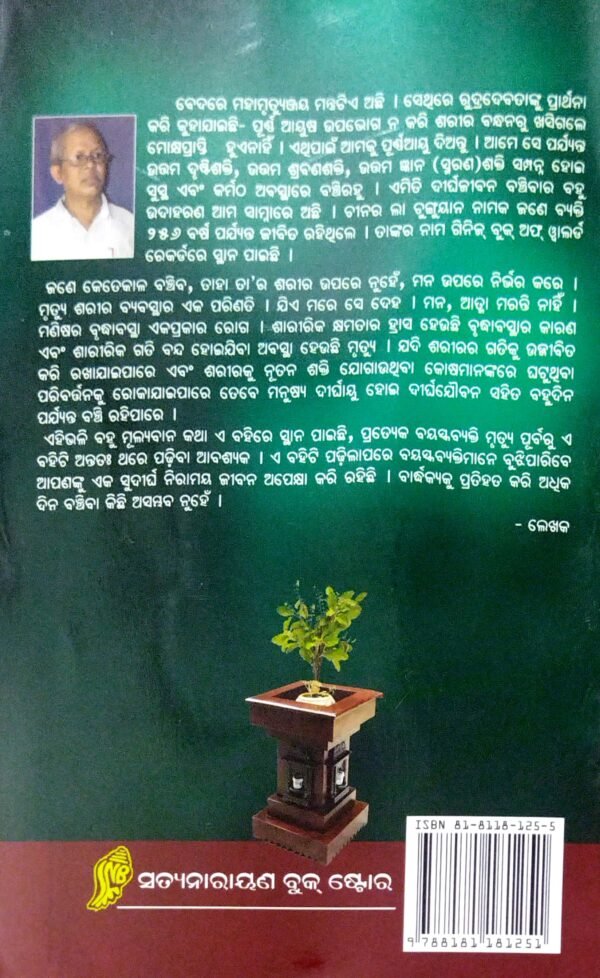 ବେଦରେ ମହାମୃତ୍ୟୁଞ୍ଜୟ ମନ୍ତ୍ରଟିଏ ଅଛି । ସେଥିରେ ରୁଦ୍ରଦେବତାଙ୍କୁ ପ୍ରାର୍ଥନା
କରି କୁହାଯାଇଛି- ପୂର୍ଣ୍ଣ ଆୟୁଷ ଉପଭୋଗ ନ କରି ଶରୀର ବନ୍ଧନରୁ ଖସିଗଲେ
ମୋକ୍ଷପ୍ରାପ୍ତି ହୁଏନାହିଁ । ଏଥିପାଇଁ ଆମକୁ ପୂର୍ଣ୍ଣଆୟୁ ଦିଅନ୍ତୁ । ଆମେ ସେ ପର୍ଯ୍ୟନ୍ତ
ଉତ୍ତମ ଦୃଷ୍ଟିଶକ୍ତି, ଉତ୍ତମ ଶ୍ରବଣଶକ୍ତି, ଉତ୍ତମ ଜ୍ଞାନ (ସ୍ମରଣ)ଶକ୍ତି ସମ୍ପନ୍ନ ହୋଇ
ସୁସ୍ଥ ଏବଂ କର୍ମଠ ଅବସ୍ଥାରେ ବଞ୍ଚିରହୁ । ଏମିତି ଦୀର୍ଘଜୀବନ ବଞ୍ଚିବାର ବହୁ
ଉଦାହରଣ ଆମ ସାମ୍ନାରେ ଅଛି । ଚୀନର ଲା ଚୁଙ୍ଗୟାନ ନାମକ ଜଣେ ବ୍ୟକ୍ତି
୨୫୬ ବର୍ଷ ପର୍ଯ୍ୟନ୍ତ ଜୀବିତ ରହିଥିଲେ । ତାଙ୍କର ନାମ ଗିନିଜ୍ ବୁକ୍ ଅଫ୍ ୱାଲର୍ଡ
ରେକର୍ଡରେ ସ୍ଥାନ ପାଇଛି ।
ଜଣେ କେତେକାଳ ବଞ୍ଚିବ, ତାହା ତା'ର ଶରୀର ଉପରେ ନୁହେଁ, ମନ ଉପରେ ନିର୍ଭର କରେ ।
ମୃତ୍ୟୁ ଶରୀର ବ୍ୟବସ୍ଥାର ଏକ ପରିଣତି । ଯିଏ ମରେ ସେ ଦେହ । ମନ, ଆତ୍ମା ମରନ୍ତି ନାହିଁ ।
ମଣିଷର ବୃଦ୍ଧାବସ୍ଥା ଏକପ୍ରକାର ରୋଗ । ଶାରୀରିକ କ୍ଷମତାର ହ୍ରାସ ହେଉଛି ବୃଦ୍ଧାବସ୍ଥାର କାରଣ
ଏବଂ ଶାରୀରିକ ଗତି ବନ୍ଦ ହୋଇଯିବା ଅବସ୍ଥା ହେଉଛି ମୃତ୍ୟୁ । ଯଦି ଶରୀରର ଗତିକୁ ଉଜ୍ଜୀବିତ
କରି ରଖାଯାଇପାରେ ଏବଂ ଶରୀରକୁ ନୂତନ ଶକ୍ତି ଯୋଗାଉଥିବା କୋଷମାନଙ୍କରେ ଘଟୁଥିବା
ପରିବର୍ତ୍ତନକୁ ରୋକାଯାଇପାରେ ତେବେ ମନୁଷ୍ୟ ଦୀର୍ଘାୟୁ ହୋଇ ଦୀର୍ଘଯୌବନ ସହିତ ବହୁଦିନ
ପର୍ଯ୍ୟନ୍ତ ବଞ୍ଚି ରହିପାରେ ।
ଏହିଭଳି ବହୁ ମୂଲ୍ୟବାନ କଥା ଏ ବହିରେ ସ୍ଥାନ ପାଇଛି, ପ୍ରତ୍ୟେକ ବୟସ୍କବ୍ୟକ୍ତି ମୃତ୍ୟୁ ପୂର୍ବରୁ ଏ
ବହିଟି ଅନ୍ତତଃ ଥରେ ପଢ଼ିବା ଆବଶ୍ୟକ । ଏ ବହିଟି ପଢ଼ିଲାପରେ ବୟସ୍କବ୍ୟକ୍ତିମାନେ ବୁଝିପାରିବେ
ଆପଣଙ୍କୁ ଏକ ସୁଦୀର୍ଘ ନିରାମୟ ଜୀବନ ଅପେକ୍ଷା କରି ରହିଛି । ବାର୍ଦ୍ଧକ୍ୟକୁ ପ୍ରତିହତ କରି ଅଧିକ
ଦିନ ବଞ୍ଚିବା କିଛି ଅସମ୍ଭବ ନୁହେଁ ।
- ଲେଖକ
ISBN 81-8118-125-5
SNB
ସତ୍ୟନାରାୟଣ ବୁକ୍ ଷ୍ଟୋର
9 788181 181251